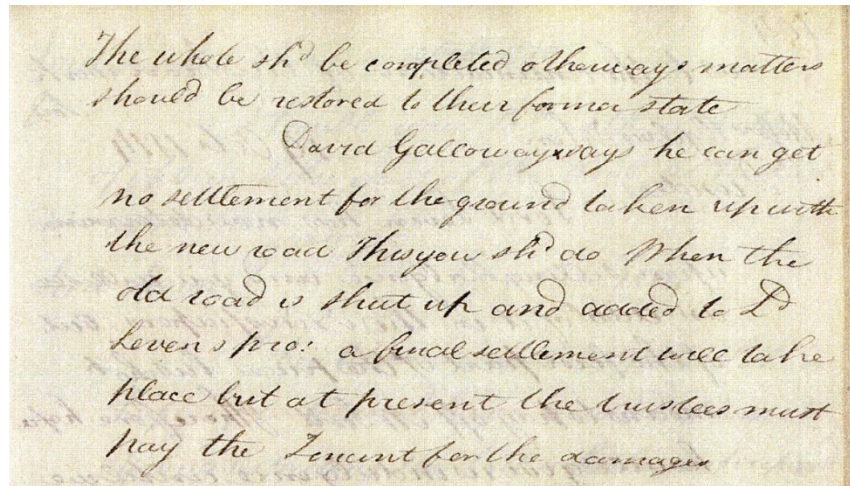 The whole shd be completed otherways matters
should be restored to their former state
David Galloway says he can get
no settlement for the ground taken up with
the new road This you shd do When the
old road is shut up and added to Ld
Levens pro: a final settlement will take
place but at present the trustees must
pay the Tenant for the damages